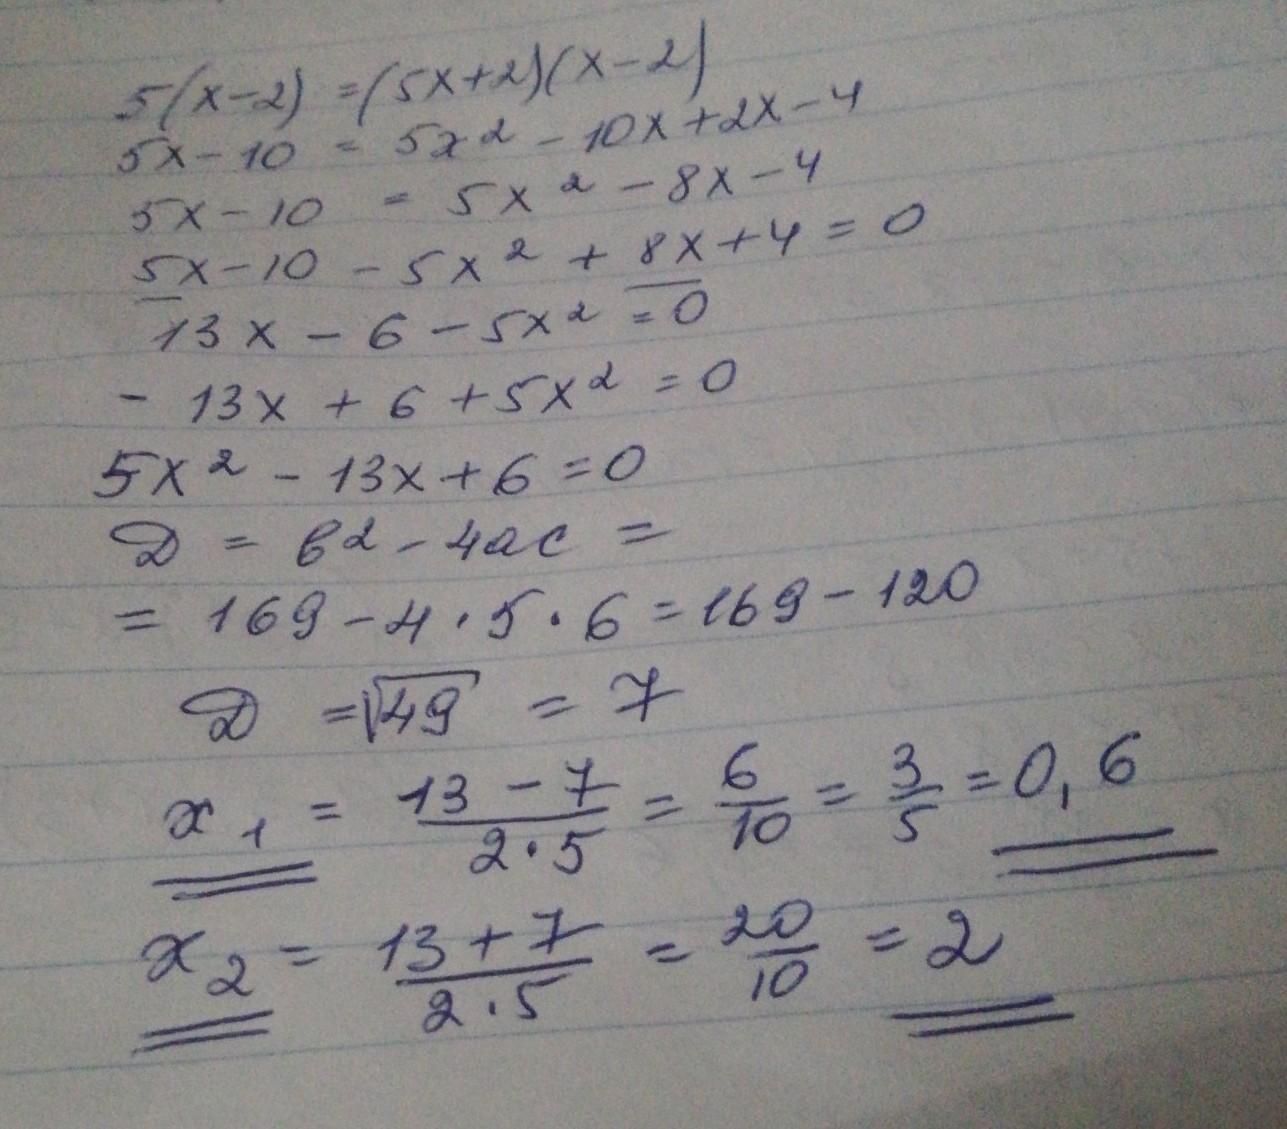 5(x-2) = (5x+2)(x-2)
5x-10 = 5x² - 10x+2x-4
5x-10 = 5x² - 8x-4
5x-10 - 5x² + 8x+4 = 0
13x - 6 - 5x² = 0
- 13x + 6 + 5x² = 0
5x² - 13x+6 = 0
D = b² - 4ac =
= 169 - 4 · 5 · 6 = 169 - 120
D = √49 = 7
x₁ = (13 - 7)/(2·5) = 6/10 = 3/5 = 0,6
x₂ = (13 + 7)/(2·5) = 20/10 = 2